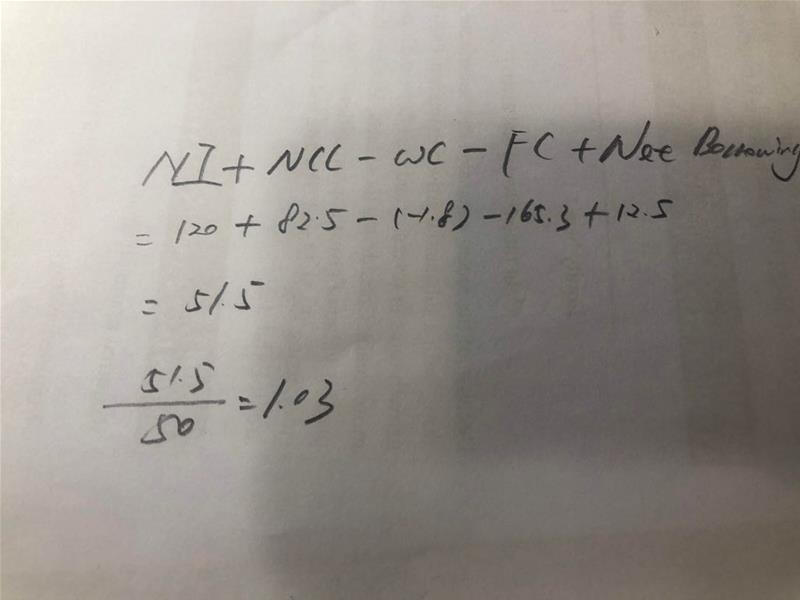 NI + NCC - WC - FC + Net Borrowing
= 120 + 82.5 - (-1.8) - 165.3 + 12.5
= 51.5
51.5
50
= 1.03